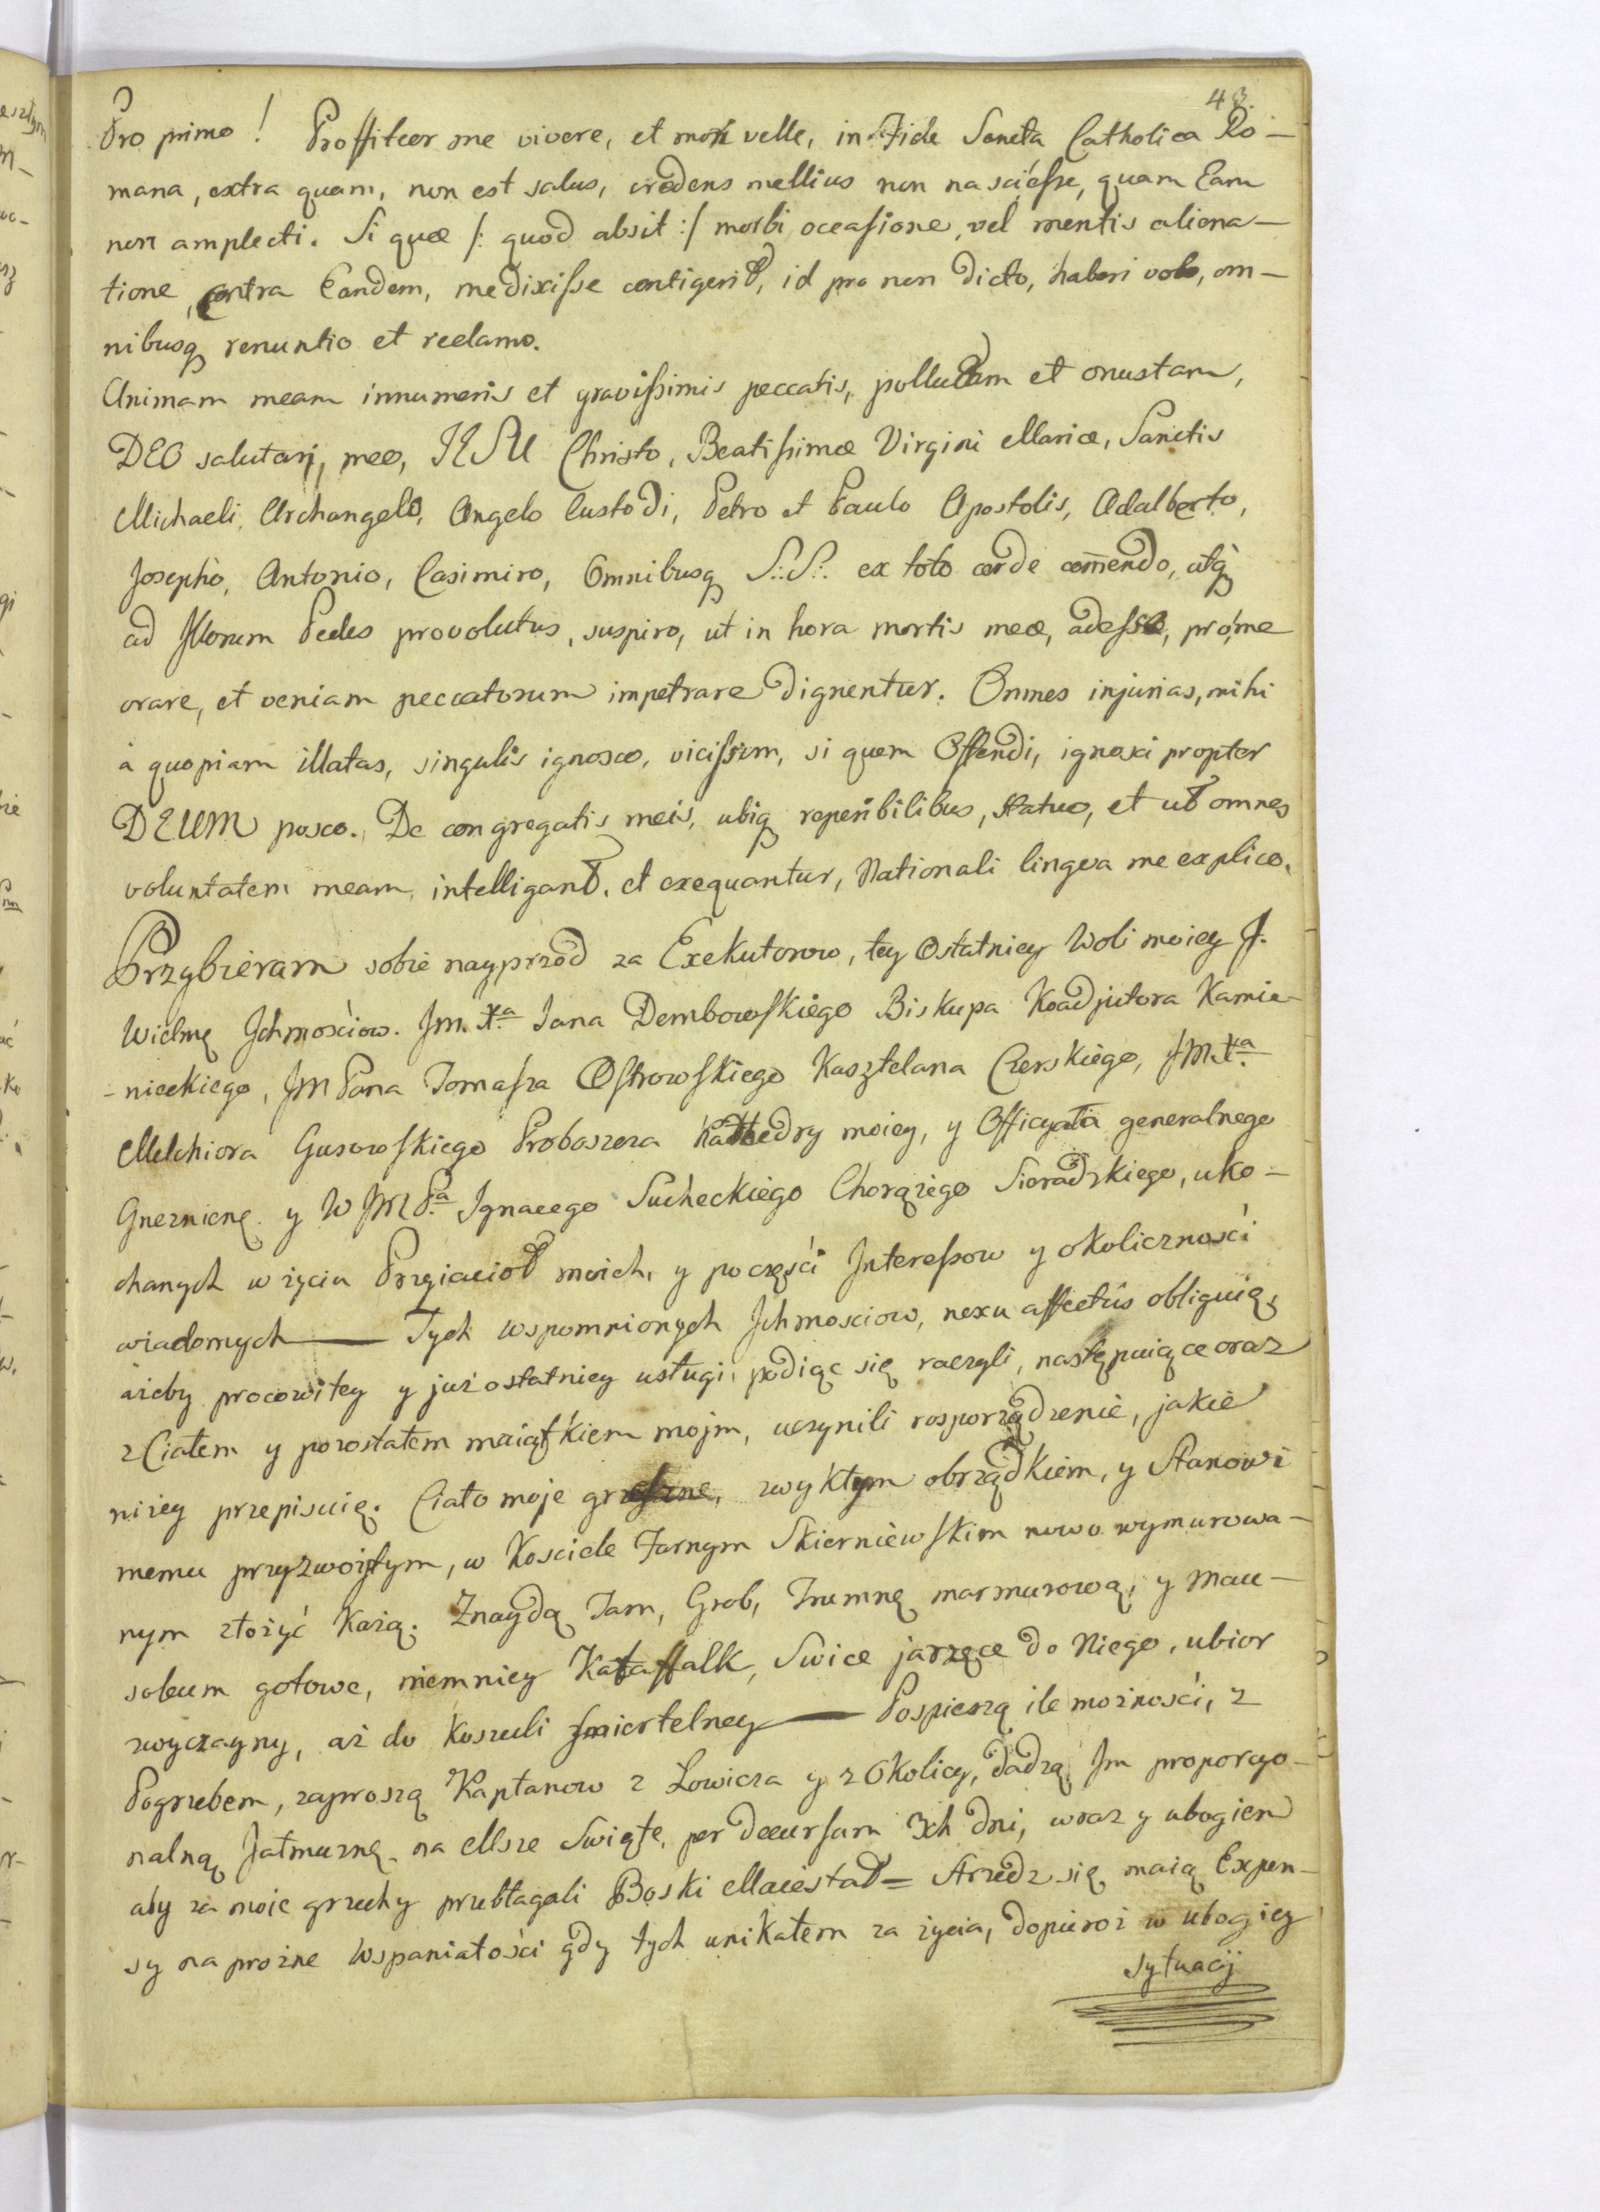 43.
Pro primo! Proffiteor me vivere, et mori velle, in Fide Sancta Catholica Ro-
mana, extra quam, non est salus, credens mellius non nasci esse, quam Eam
non amplecti. Si quæ /: quod absit :/ morbi occasione, vel mentis aliena-
tione, contra Eandem, me dixisse contigerit, id pro non dicto, haberi volo, om-
nibusq renuntio et reclamo.
Animam meam innumeris et gravissimis peccatis, pollutam et onustam,
DEO salutari, meo, JESU Christo, Beatissimæ Virgini Mariæ, Sanctis
Michaeli Archangelo, Angelo Custodi, Petro et Paulo Apostolis, Adalberto,
Josepho, Antonio, Casimiro, Omnibusq S:S: ex toto corde com̄endo, atq
ad Illorum Pedes provolutus, suspiro, ut in hora mortis meæ, adesse, pro me
orare, et veniam peccatorum impetrare dignentur. Omnes injurias, mihi
à quopiam illatas, singulis ignosco, vicissim, si quem Offendi, ignosci propter
DEUM posco. De congregatis meis, ubiq reperibilibus, statuo, et ut omnes
voluntatem meam, intelligant, et exequantur, Nationali lingva me explico.
Przybieram sobie nayprzod za Exekutorow, tey Ostatniey Woli moiey J.
Wielmę Jchmościow. Jm. Xa Jana Dembowskiego Biskupa Koadjutora Kamie-
-nieckiego, JM Pana Tomasza Ostrowskiego Kasztelana Czerskiego, JM Xa
Melchiora Gusowskiego Proboszcza Kathedry moiey, y Officyała generalnego
Gnezninę. y W JM Pa Ignacego Sucheckiego Chorążego Sieradzkiego, uko-
chanych w życiu Przyiacioł moich, y poczęści Interessow y okoliczności
wiadomych — Tych wspomnionych Jchmosciow, nexu affectûs obliguię,
ażeby procowitey y już ostatniey usługi, podiąc się raczyli, następuiące oraz
z Ciałem y pozostałem maiątkiem mojm, uczynili rosporządzenie, jakie
niżey przepisuię. Ciało moje grzeszne, zwykłym obrządkiem, y Stanowi
memu przyzwoitym, w Kosciele Farnym Skierniewskim nowo wymurowa-
nym złożyć Każą. Znaydą Tam, Grob, Trumnę marmurową, y Mau-
soleum gotowe, niemniey Kataffalk, Swice jarzęce do Niego, ubior
zwyczayny, aż do Koszuli smiertelney — Pospieszą ile możności, z
Pogrzebem, zaproszą Kapłanow z Łowicza y z Okolicy, dadzą Jm proporcyo-
nalną Jałmużnę, na Msze Swięte, per decursum 3ch dni, wraz y ubogiem
aby za moie grzechy przebłagali Boski Maiestat = Strzedz się maią Expen-
sy na prożne Wspaniałości gdy tych unikałem za życia, dopieroż w ubogiey
sytuacij